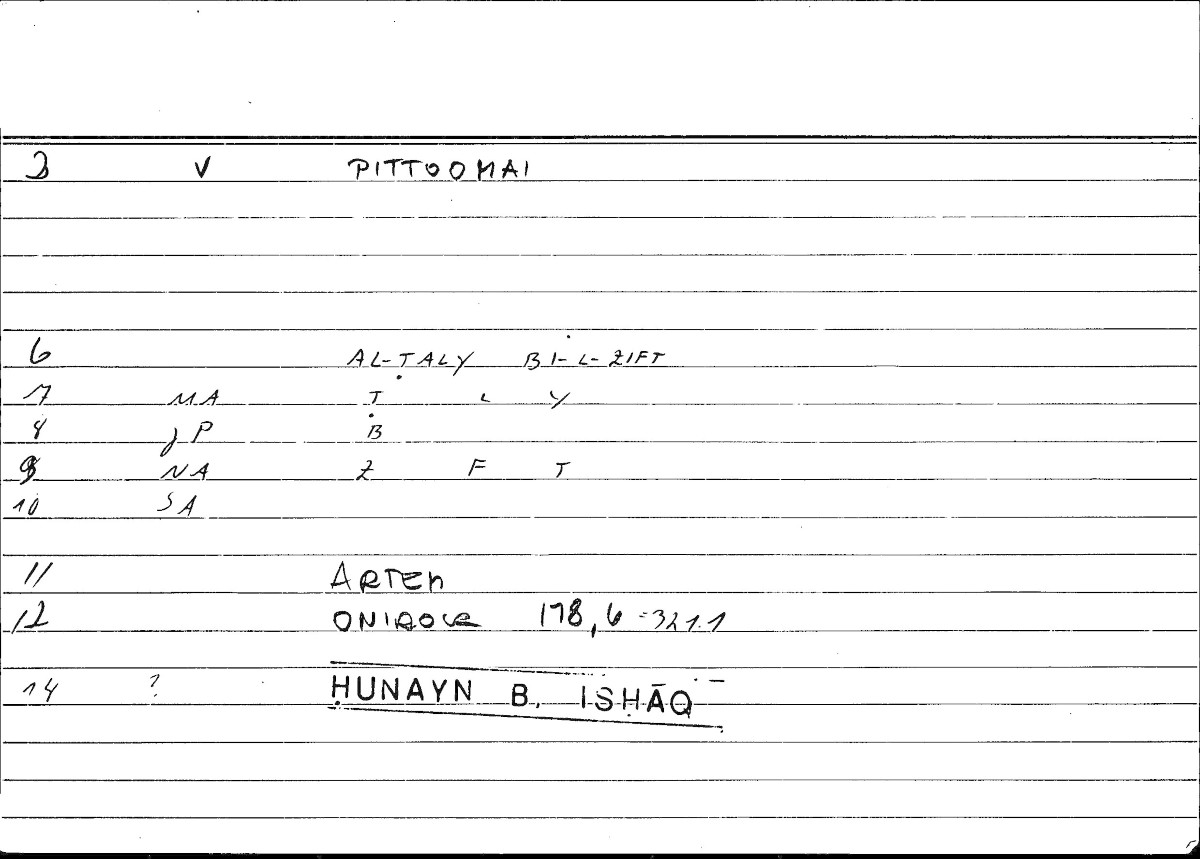 3 V PITTOOMAI
6 AL-ṬALY BI-L-ZIFT
7 MA Ṭ L Y
8 JP Ḅ
9 NA Z F T
10 SA
11 ARTEM
12 ONIROCR 178,6 =321.1
14 ? ḤUNAYN B. ISḤĀQ